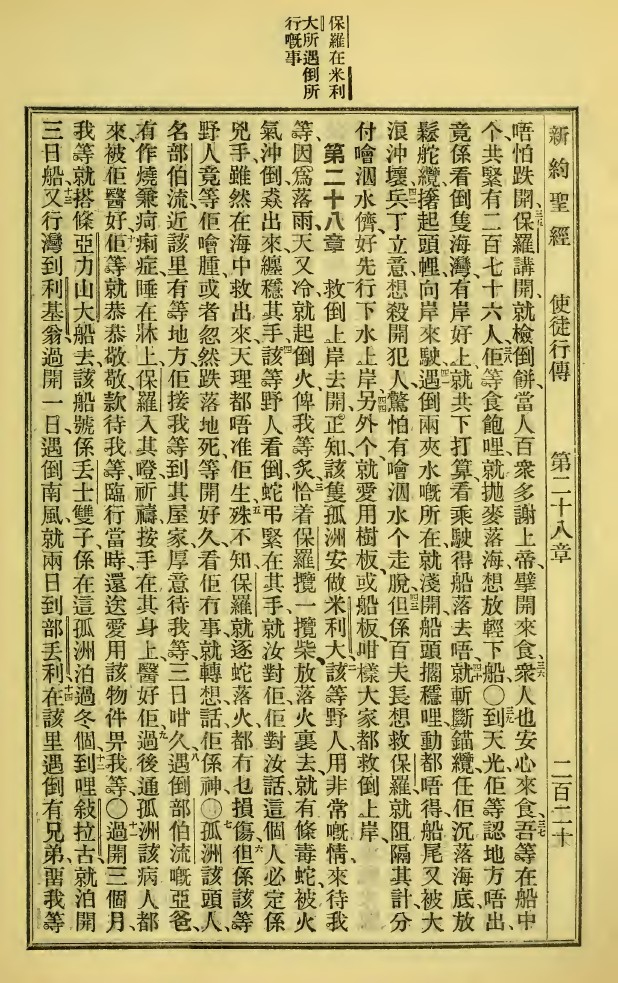 保羅在米利
大所遇倒所
行嘅事
新約聖經 使徒行傳 第二十八章 二百二十
唔怕跌開保羅講開就檢倒餅當人百衆多謝上帝擘開來食衆人也安心來食吾等在船中
個共緊有二百七十六人佢等食飽哩就拋麥落海想放輕下船〇到天光佢等認地方唔出
竟係看倒隻海灣有岸好上就共下打算看乘駛得船落去唔就斬斷錨纜任佢沉落海底放
鬆舵纜撦起頭𢃇向岸來駛遇倒兩夾水嘅所在就淺開船頭擱穩哩動都唔得船尾又被大
浪沖壞兵丁立意想殺開犯人驚怕有噲泅水个走脫但係百夫長想救保羅就阻隔其計分
付噲泅水儕好先行下水上岸另外个就愛用樹板或船板咁樣大家都救倒上岸
第二十八章 救倒上岸去開正知該隻孤洲安做米利大該等野人用非常嘅情來待我
等因爲落雨天又冷就起倒火俾我等炙恰着保羅攬一攬柴放落火裏去就有條毒蛇被火
氣沖倒猋出來纏穩其手該等野人看倒蛇弔緊在其手就汝對佢佢對汝話這個人必定係
兇手雖然在海中救出來天理都唔准佢生殊不知保羅就逐蛇落火都冇乜損傷但係該等
野人竟等佢噲腫或者忽然跌落地死等開好久看佢冇事就轉想話佢係神〇孤洲該頭人
名部伯流近該里有等地方佢接我等到其屋家厚意待我等三日咁久遇倒部伯流嘅亞爸
有作燒兼疴痢症睡在牀上保羅入其嶝祈禱按手在其身上醫好佢過後通孤洲該病人都
來被佢醫好佢等就恭恭敬敬款待我等臨行當時還送愛用該物件畀我等〇過開三個月
我等就搭條亞力山大船去該船號係丟士雙子係在這孤洲泊過冬個到哩敍拉古就泊開
三日船又行灣到利基翁過開一日遇倒南風就兩日到部丟利在該里遇倒有兄弟留我等